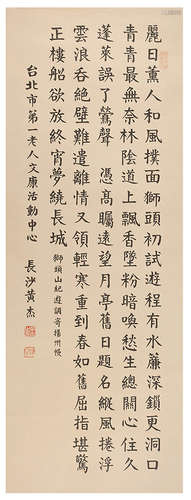 麗日薰人和風撲面獅頭初試遊程有水簾深鎖更洞口
青青最無奈林陰道上飄香墜粉暗喚愁生總關心住久
蓬萊誤了鶯聲　憑高矚遠望月亭舊日題名縱風捲浮
雲浪吞絕壁難遣離情又領輕寒重到春如舊屈指堪驚
正樓船欲放終宵夢繞長城
獅頭山紀遊調寄揚州慢
台北市第一老人文康活動中心
長沙黃杰